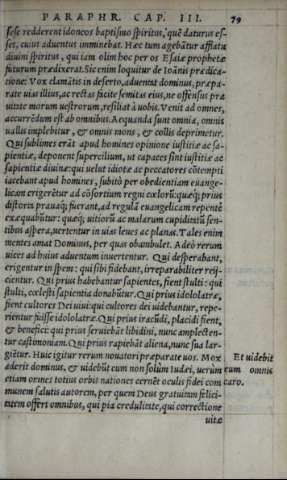 PARAPHR. CAP. III. 79
sese redderent idoneos baptismo spiritus, quē daturus es-
set, cuius aduentus imminebat. Hæc tum agebātur afflatu
diuini spiritus, qui iam olim hoc per os Esaiæ prophetæ
futurum prædixerat. Sic enim loquitur de Ioānis prædica-
tione: Vox clamātis in deserto, aduentat dominus, præpa-
rate uias illius, ac rectas facite semitas eius, ne offensus pra
uitate morum uestrorum, resiliat à uobis. Venit ad omnes,
accurrēdum est ab omnibus. Aequanda sunt omnia, omnis
uallis implebitur, & omnis mons, & collis deprimetur.
Qui sublimes erāt apud homines opinione iustitiæ ac sa-
pientiæ, deponent supercilium, ut capaces sint iustitiæ ac
sapientiæ diuinæ: qui uelut idiotæ ac peccatores cōtempti
iacebant apud homines, subitò per obedientiam euange-
licam erigētur ad cōsortium regni cælorū: quæq; prius
distorta prauaq; fuerant, ad regulā euangelicam repentè
exæquabūtur: quæq; uitiorū ac malarum cupiditatū sen-
tibus aspera, uertentur in uias leues ac planas. Tales enim
mentes amat Dominus, per quas obambulet. Adeò rerum
uices ad huius aduentum inuertentur. Qui desperabant,
erigentur in spem: qui sibi fidebant, irreparabiliter reij-
cientur. Qui prius habebantur sapientes, fient stulti: qui
stulti, cælesti sapientia donabūtur. Qui prius idololatræ,
fient cultores Dei uiui: qui cultores dei uidebantur, repe-
rientur fuisse idololatræ. Qui prius iracūdi, placidi fient,
& benefici: qui prius seruiebāt libidini, nunc amplecten-
tur castimoniam. Qui prius rapiebāt aliena, nunc sua lar-
giētur. Huic igitur rerum nouatori præparate uos. Mox
aderit dominus, & uidebūt eum non solùm Iudæi, uerùm
etiam omnes totius orbis nationes cernēt oculis fidei com
munem salutis autorem, per quem Deus gratuitam felici-
tatem offert omnibus, qui pia credulitate, qui correctione
uitæ
Et uidebit
eum omnis
caro.